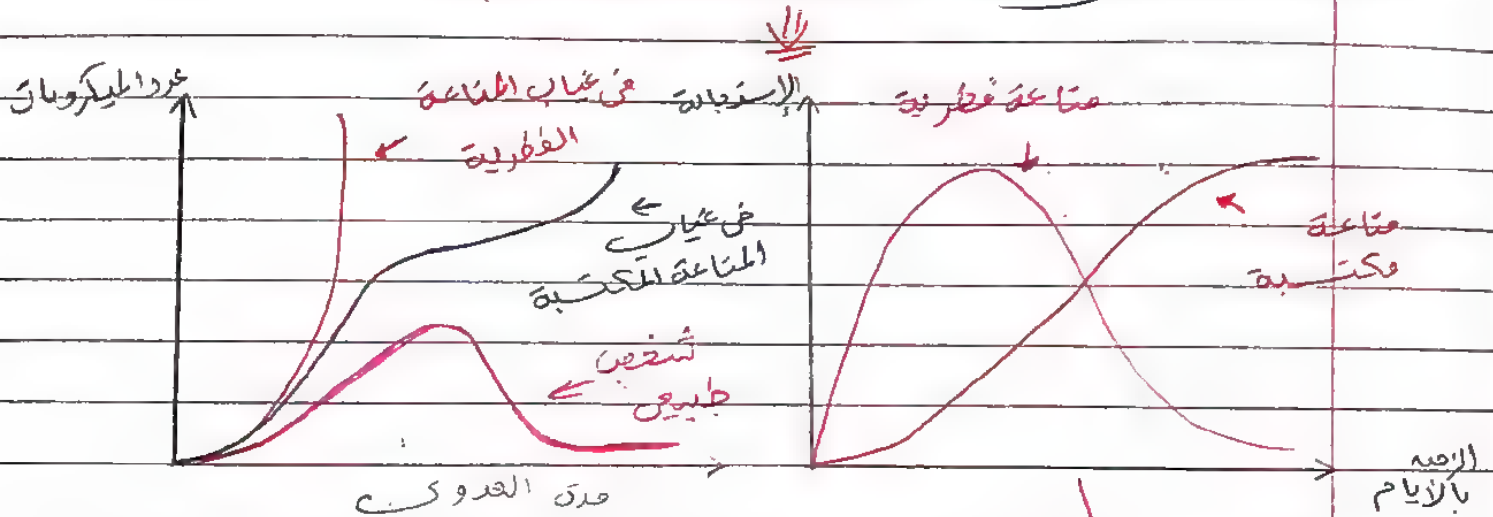 عدد الميكروبات
في غياب المناعة
الفطرية
في غياب
المناعة المكتسبة
شخص
طبيعي
مدى العدوى
الإستجابة
مناعة فطرية
مناعة
مكتسبة
الزمن
بالأيام